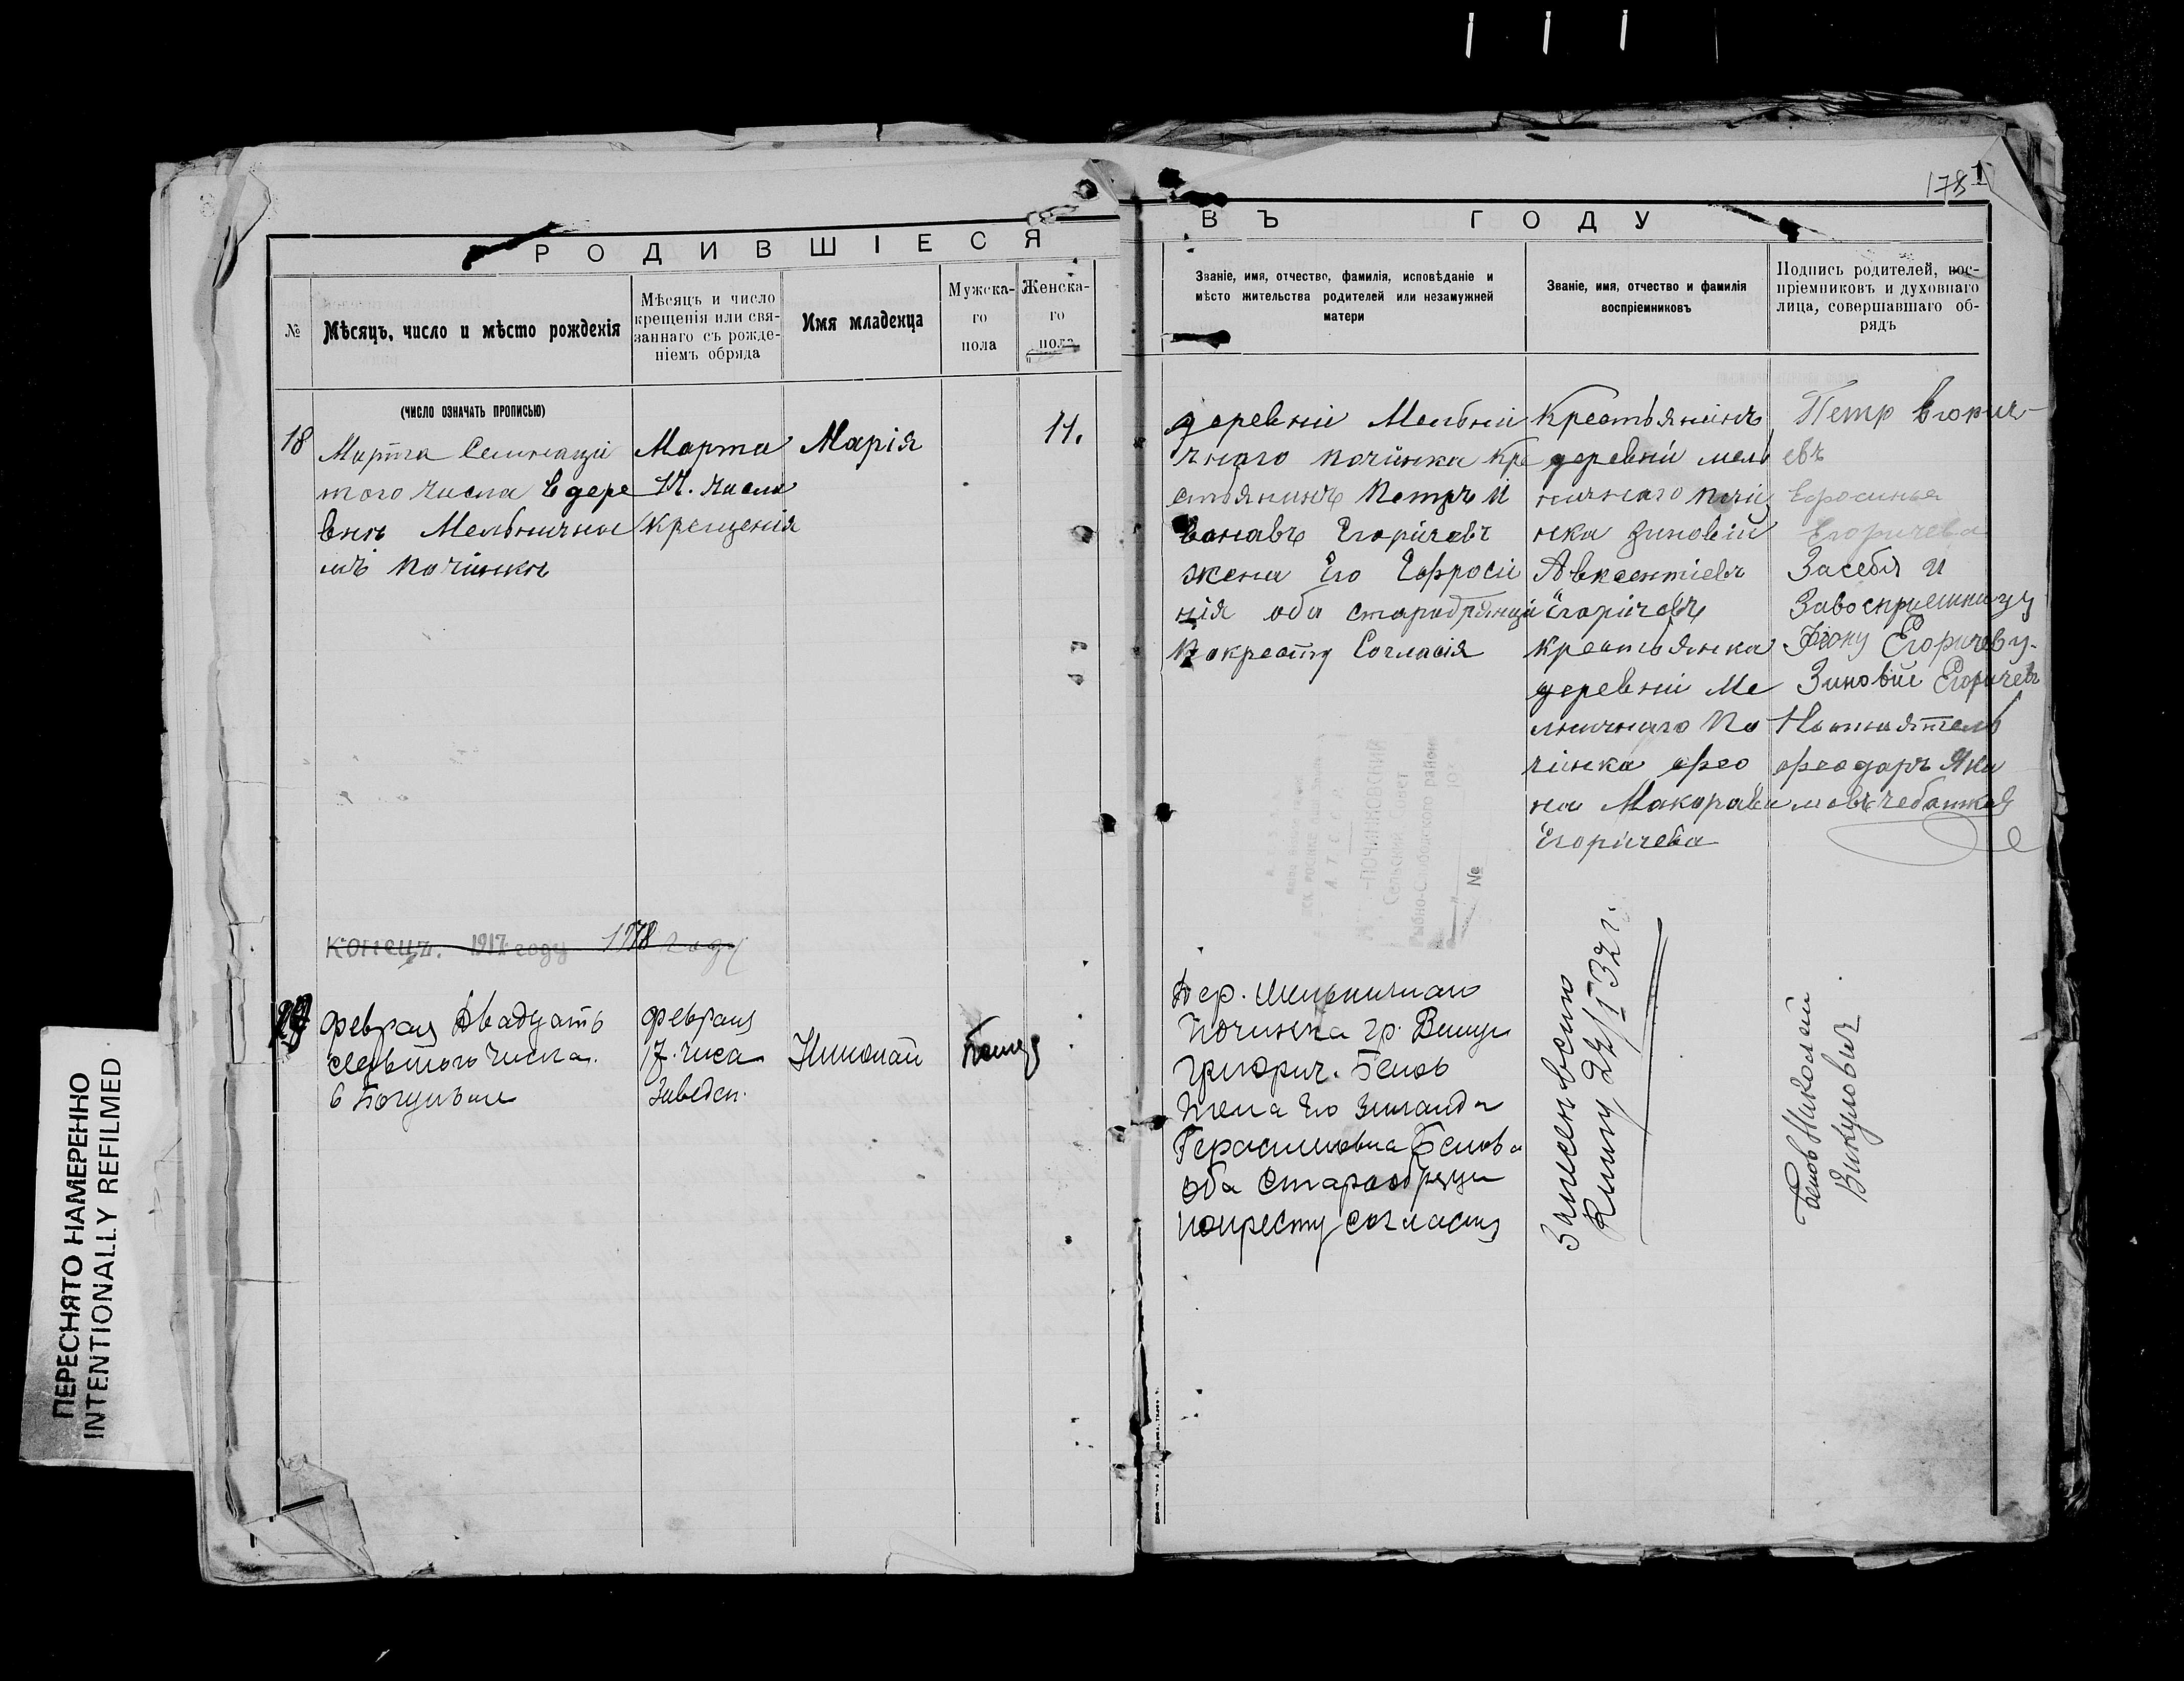 178
РОДИВШІЕСЯ
ВЪ ГОДУ
№
Мѣсяцъ, число и мѣсто рожденія
Мѣсяцъ и число
крещенія или свя-
заннаго съ рожде-
ніемъ обряда
Имя младенца
Мужска-
го
пола
Женска-
го
пола
Званіе, имя, отчество, фамилія, исповѣданіе и
мѣсто жительства родителей или незамужней
матери
Званіе, имя, отчество и фамилія
воспріемниковъ
Подпись родителей, вос-
пріемниковъ и духовнаго
лица, совершавшаго об-
рядъ
(число означать прописью)
18
Марта
того числа в дере
внѣ Мельнично
мъ починкѣ
Марта
17. числа
крещенія
Марія
11.
деревни Мельни
чнаго починка кре
стьянинъ Петръ И
вонавъ Егоричевъ
жена Его Ефроси
нія оба
покресту Согласія
Крестьянинъ
деревни мель
ничнаго почи
нка Зиновій
Авксентіевъ
Егоричевъ
крестьянка
деревни Ме
лничнаго По
чинка фео
на Макорова
Егоричева
Петр Егорич-
евъ
Ефросинья
Егоричева
Засебя и
Завосприемницу
Егоричеву.
Зиновій Егоричевъ
Настаятель
феодаръ Яки
мовъ чебаткая
-ПОЧИНКОВСКИЙ
Сельский Совет
Рыбно-Слободского района
193
№
конецъ. 1917 году 1918 году
февраля Двадцать
седьмого числа.
в Богульше
февраля
17. числа
Заведен.
Николай
Дер. Мельничнаго
Починка гр. Викул
Григорич. Белов
Жена Его Зинаида
Герасимовна Белова
Оба Старообрядцы
покресту согласия
Записен в сию
Книгу 22/I 32 г.
Белов Николай
Викулович
ПЕРЕСНЯТО НАМЕРЕННО
INTENTIONALLY REFILMED